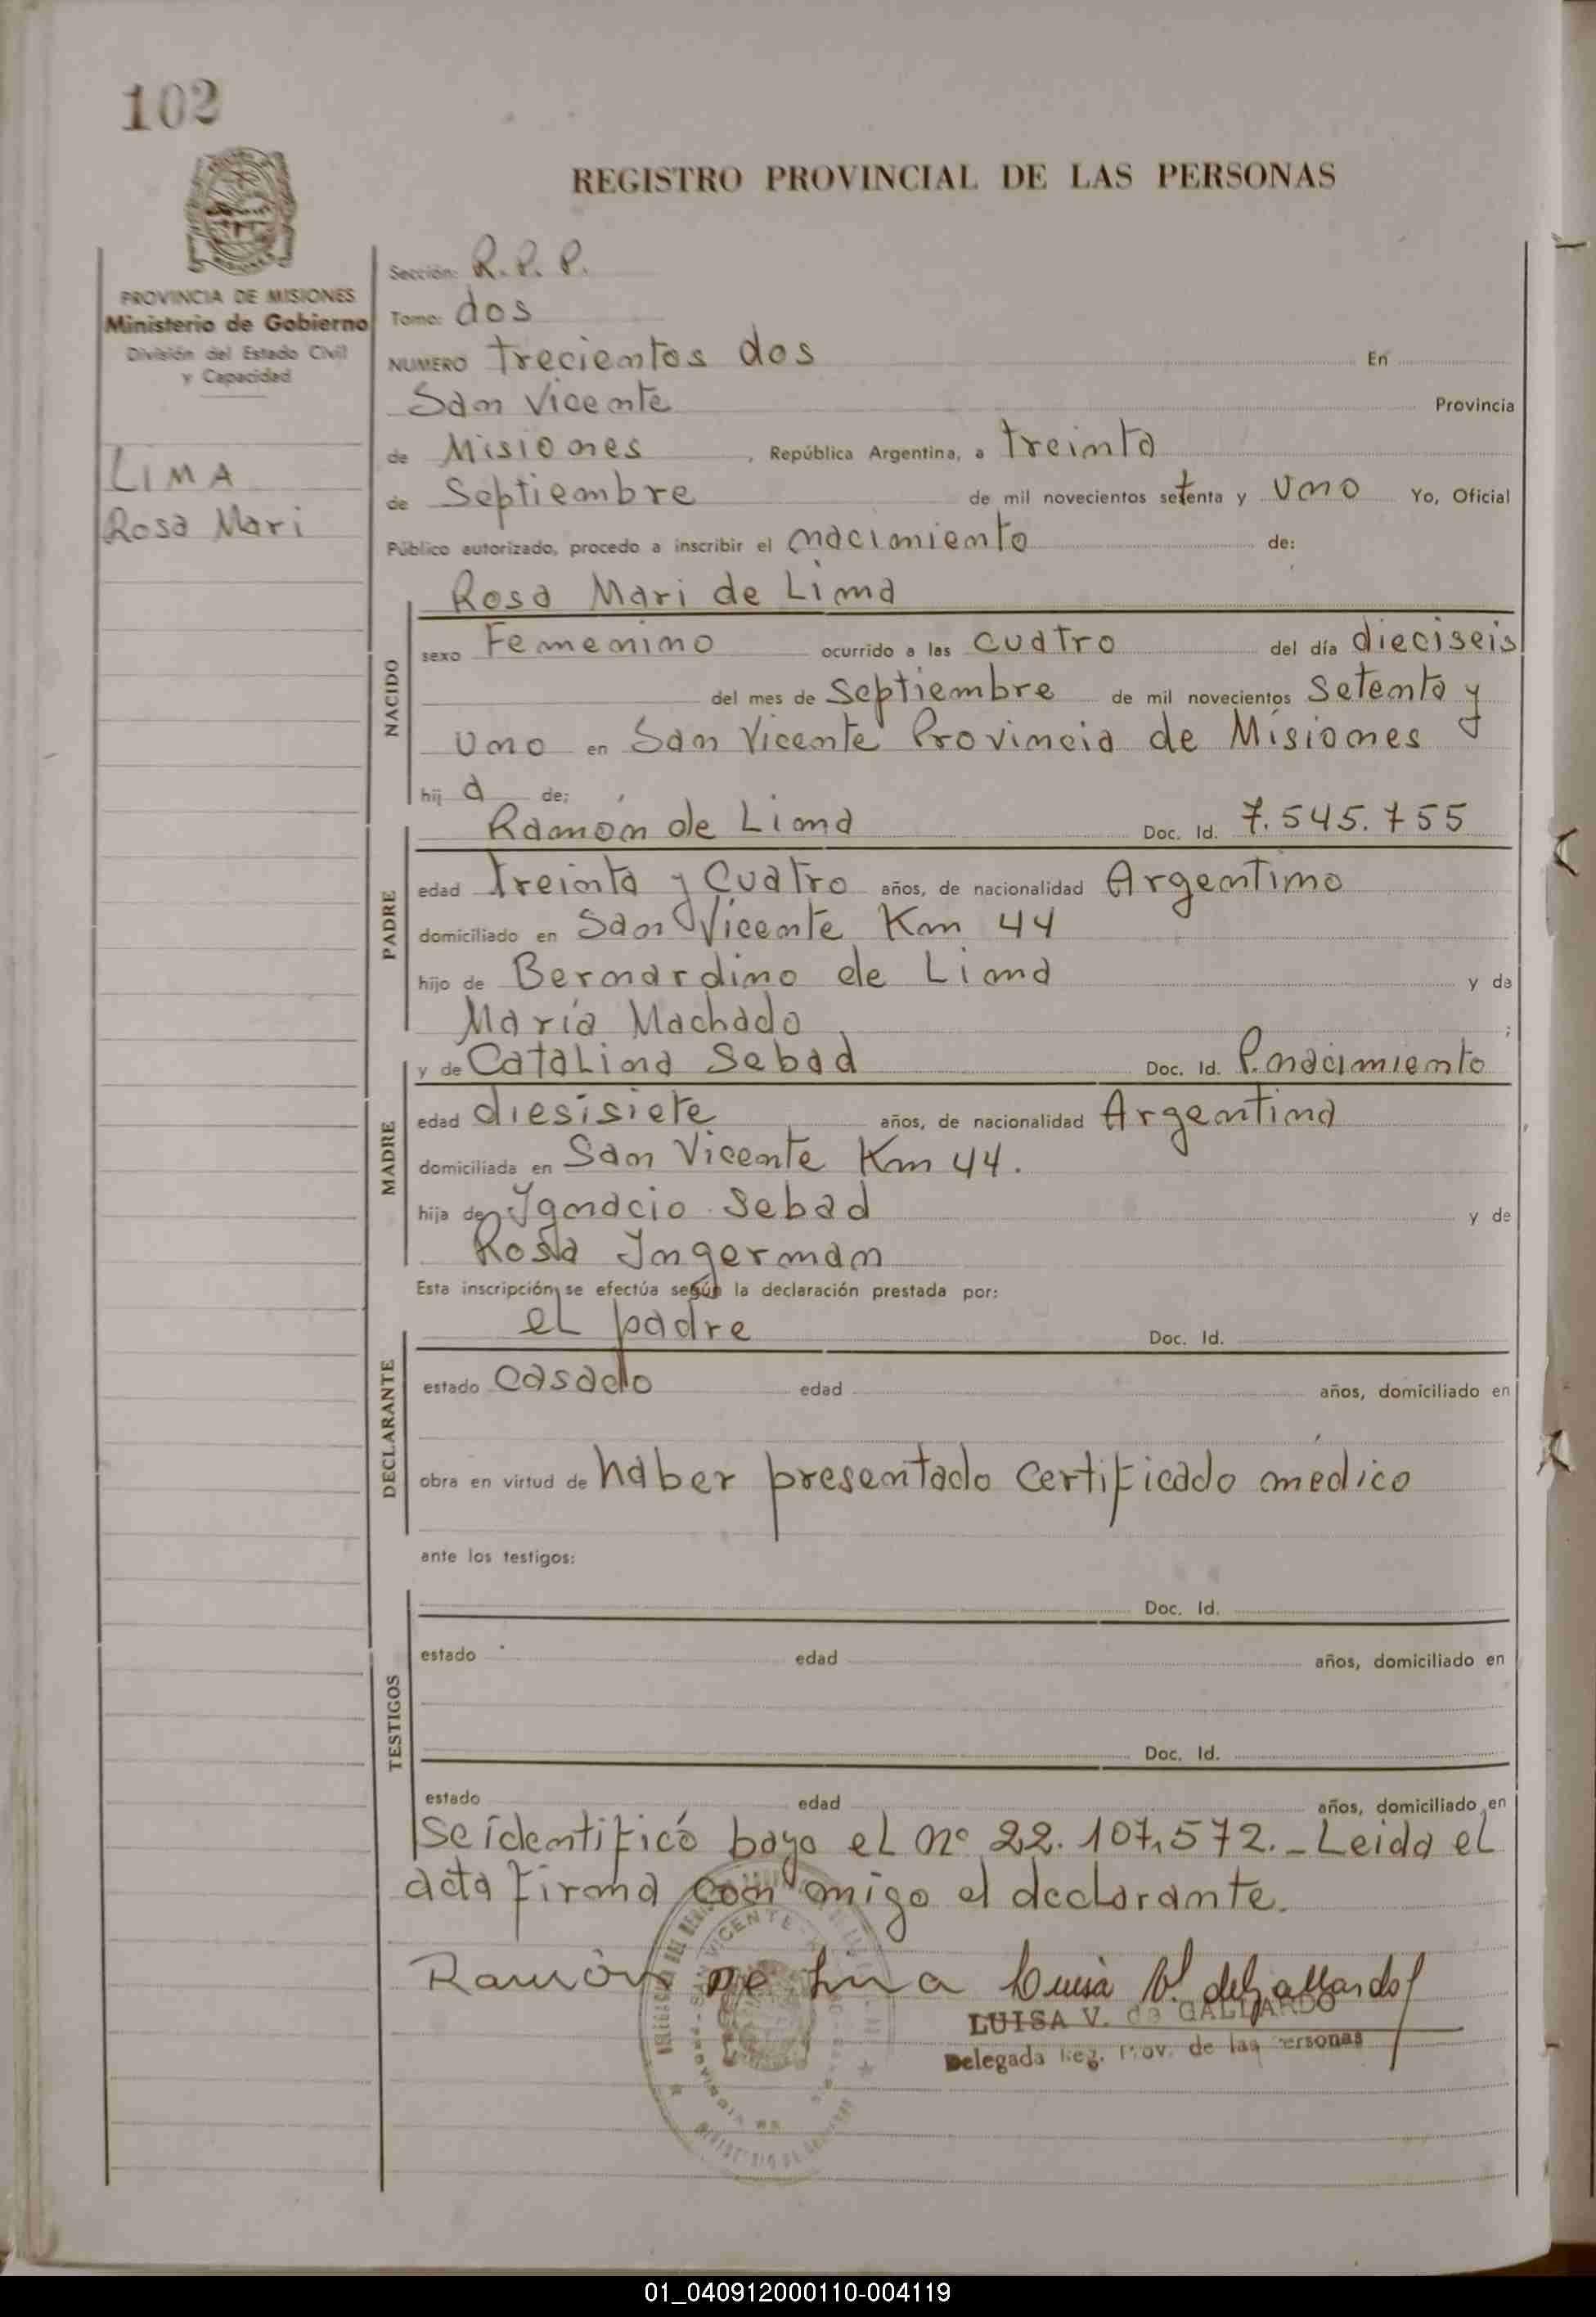 102
REGISTRO PROVINCIAL DE LAS PERSONAS
PROVINCIA DE MISIONES
Ministerio de Gobierno
División del Estado Civil
y Capacidad
LIMA
Rosa Mari
Sección: R. P. P.
Tomo: dos
NUMERO trecientos dos En
San Vicente Provincia
de Misiones , República Argentina, a treinta
de Septiembre de mil novecientos setenta y uno Yo, Oficial
Público autorizado, procedo a inscribir el nacimiento de:
NACIDO
Rosa Mari de Lima
sexo Femenino ocurrido a las cuatro del día dieciseis
del mes de Septiembre de mil novecientos setenta y
uno en San Vicente Provincia de Misiones
hij a de:
PADRE
Ramón de Lima Doc. Id. 7.545.755
edad treinta y cuatro años, de nacionalidad Argentino
domiciliado en San Vicente Km 44
hijo de Bernardino de Lima y de
María Machado ;
MADRE
y de Catalina Sebad Doc. Id. P. nacimiento
edad diesisiete años, de nacionalidad Argentina
domiciliada en San Vicente Km 44.
hija de Ignacio Sebad y de
Rosa Ingerman
Esta inscripción se efectúa según la declaración prestada por:
DECLARANTE
el padre Doc. Id.
estado casado edad años, domiciliado en
obra en virtud de haber presentado certificado médico
ante los testigos:
TESTIGOS
Doc. Id.
estado edad años, domiciliado en
Doc. Id.
estado edad años, domiciliado en
Se identificó bayo el nº 22.107.572. - Leida el
acta firma con migo el declarante.
Ramón de Lima Luisa V. de Gallardo
LUISA V. de GALLARDO
Delegada Reg. Prov. de las Personas
SAN VICENTE
01_040912000110-004119